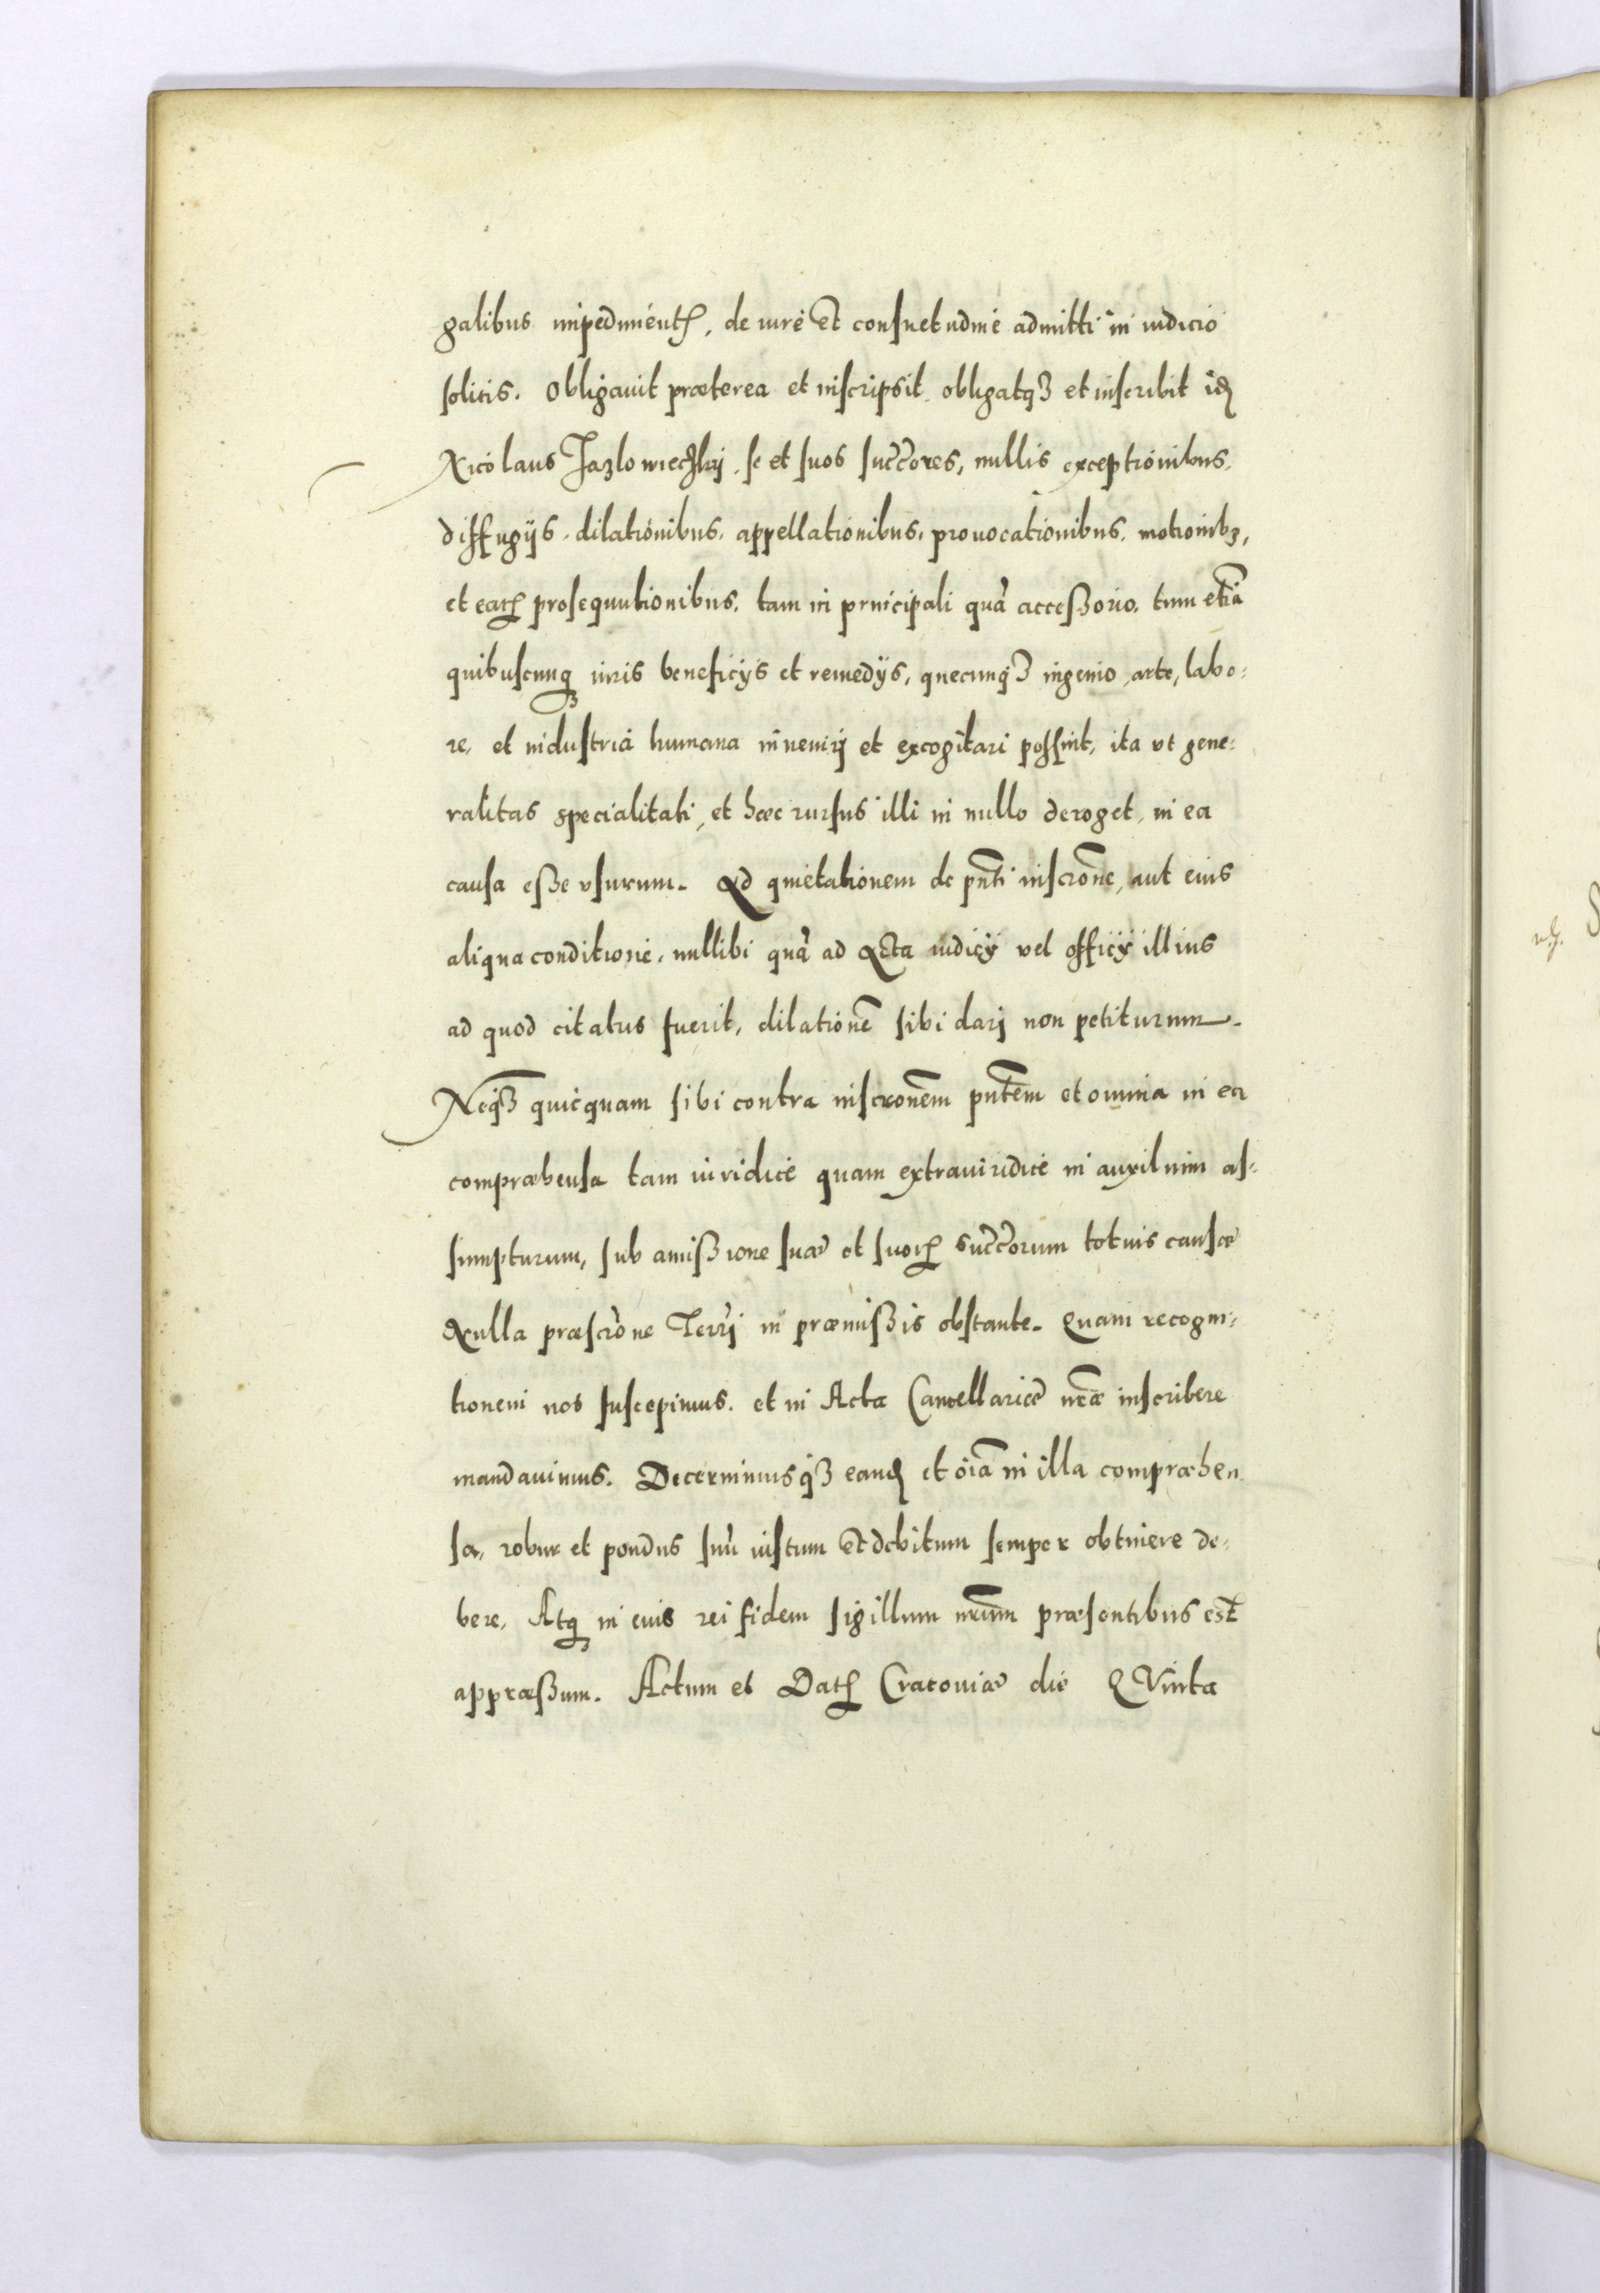 galibus impedimentꝝ, de iure et consuetudine admitti in iudicio
solitis. Obligauit præterea et inscripsit obligatqꝫ et inscribit idꝫ
Nicolaus Jazlowieczkij se et suos succores, nullis exceptionibus,
diffugijs, dilationibus, appellationibus, prouocationibus, motionibꝫ,
et eaꝝ prosequutionibus, tam in principali quã accessorio, tum etiã
quibuscunqꝫ iuris beneficijs et remedijs, quecunqꝫ ingenio, arte, labo-
re, et industria humana inuenirj et excogitari possint, ita vt gene-
ralitas specialitati, et hæc rursus illi in nullo deroget, in ea
causa esse vsurum. Ad quietationem de pñti inscrõne, aut eius
aliqua conditione, nullibi quã ad Acta iudicij vel officij illius
ad quod citatus fuerit, dilationẽ sibi darj non petiturum.
Neqꝫ quicquam sibi contra inscrõnem pñtem et omnia in ea
compræhensa tam iuridicè quam extraiuridicè in auxilium as-
sumpturum, sub amissione suæ et suoꝝ succorum totius causæ
Nulla præscrõne Terrj in præmissis obstante. Quam recogni-
tionem nos suscepimus, et in Acta Cancellariæ nræ inscribere
mandauimus. Decernimusqꝫ eandꝫ et oĩa in illa compræhen-
sa, robur et pondus suũ iustum et debitum semper obtinere de-
bere, Atqꝫ in eius rei fidem sigillum nrum præsentibus est
appræssum. Actum et Datꝝ Cracouiæ die Quinta